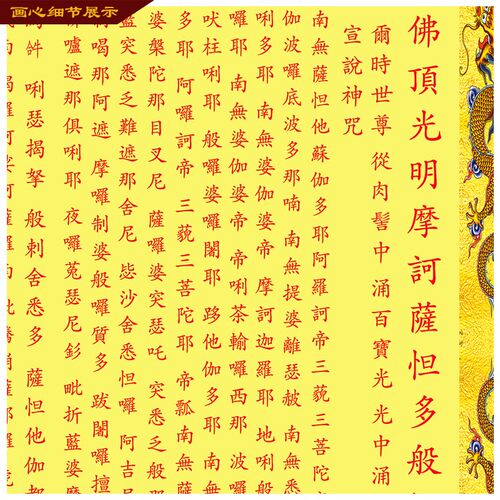 画心细节展示
佛頂光明摩訶薩怛多般
爾時世尊 從肉髻中 涌百寶光 光中涌
宣說神咒
南無薩怛他 蘇伽多耶 阿羅訶帝 三藐三菩陀
伽波囉底波多那喃 南無提婆離瑟赧 南無
唎多耶 南無婆伽婆帝 摩訶迦羅耶 地唎般
耶 南無婆伽婆帝 唎茶輸囉西那 波囉
吠柱唎耶 般囉婆囉闍耶 跢他伽多耶 南無薩
多耶 阿囉訶帝 三藐三菩陀耶 帝瓢 南無薩
婆槃陀那目叉尼 薩囉婆突瑟吒 突悉乏般那
藍突悉乏難遮那舍尼 毖沙舍悉怛囉 阿吉尼
喝那阿遮 摩囉制婆般囉質多 跋闍囉擅
嚧遮那俱唎耶 夜囉菟瑟尼釤 毗折藍婆
唎瑟揭拏 般剌舍悉多 薩怛他伽都